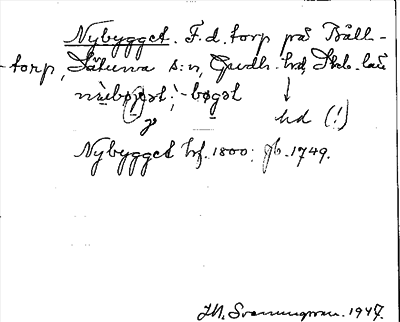 Nybygget. F.d. torp på Båll-
torp, Säterna s:n, Gudh. hd, Skb. län
nẁbøgət; -bøgət
y hd (!)
Nybygget hf. 1800: gb. 1749.
J.M. Svenningson. 1947.